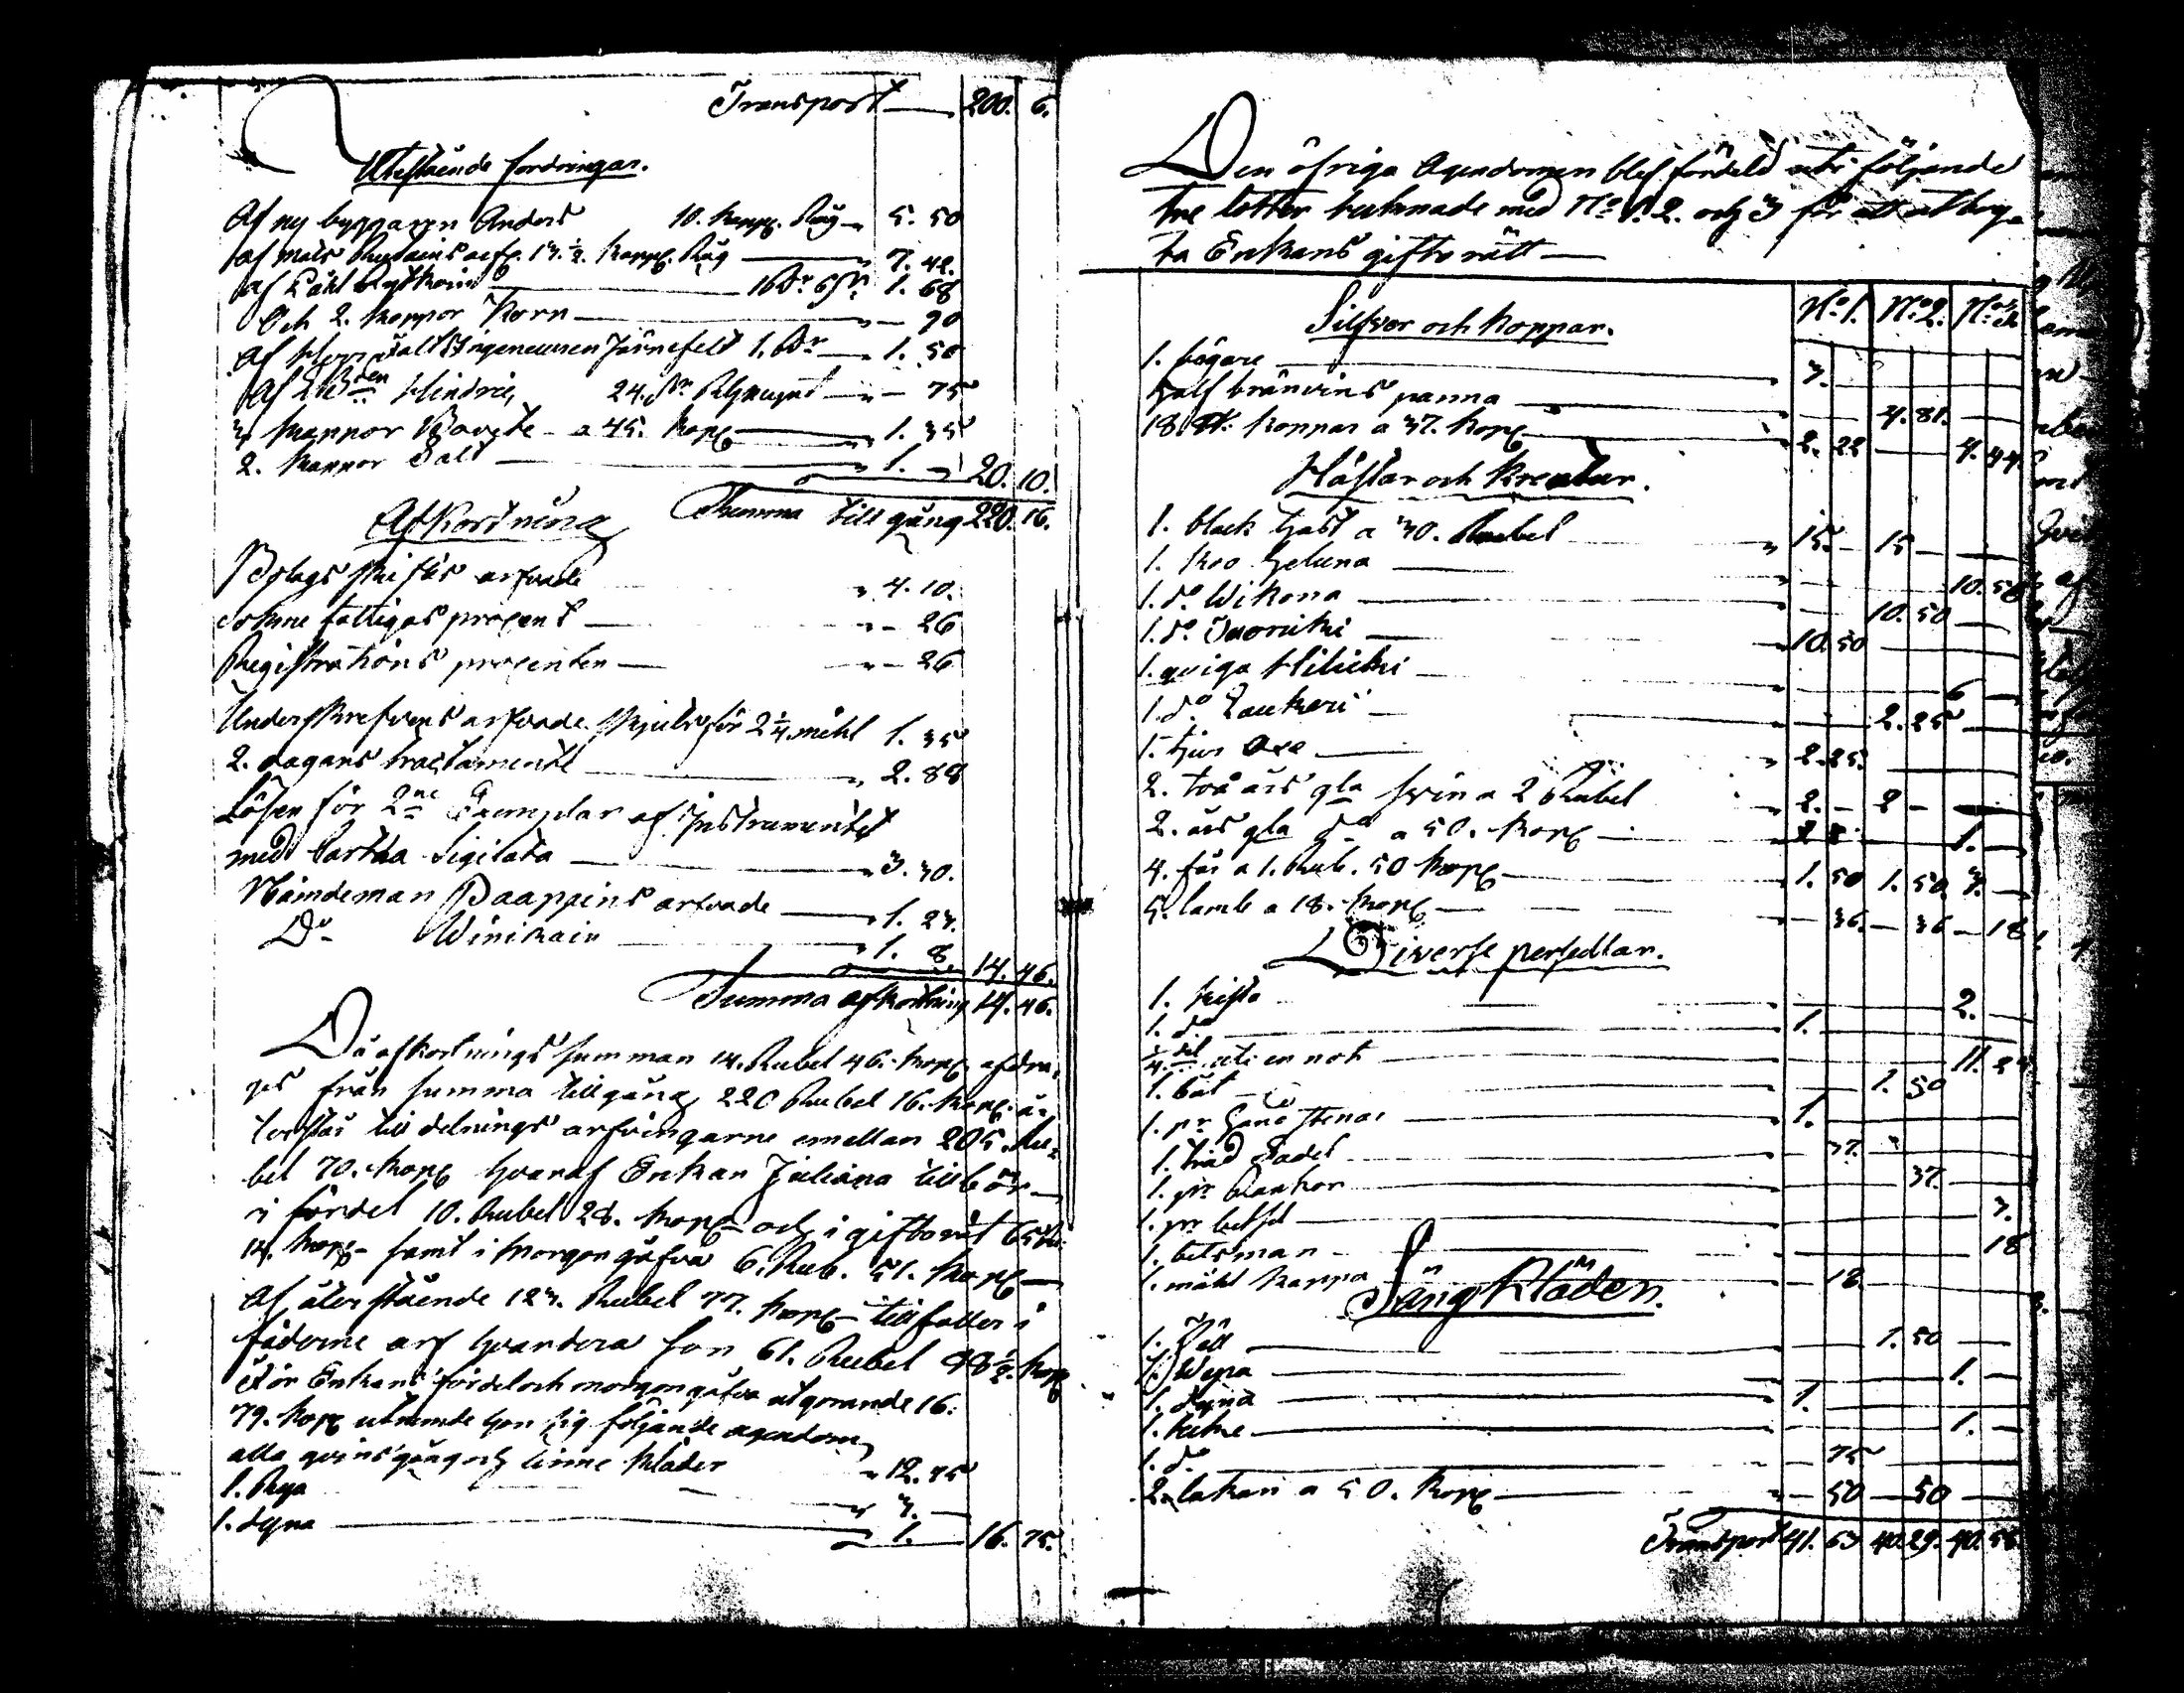 Transport 200. 6.
Utestående fordringar.
Af ny byggaren Anders 10. kapp. Råg 5. 50
af mats arfv. 13. ½ kapp. Råg 7. 42.
af Påhl Rytkoin 1. 68
Och 2. kappor Korn 90
af Ingeneuren Järnefelt 1. 1. 50
af Hindric 24. 75
3 kappor Bovete a 45. kop. 1. 35
2. kappor Salt 1. 20. 10.
Summa till gång 220. 16.
Afkortning
Bolags skiftes arfvode 4. 10.
Sokne fattigas procent 26
Registrations procenten 26
Underskrefvens arfvode skjuts för 2¼ mihl 1. 35
2. dagars tractamente 2. 88
Lösen för 2ne Exemplar af Instrumentet
med Cartha Sigilata 3. 30.
Nämdeman Paappins arfvode 1. 23.
Do Winikain 1. 8. 14. 46.
Summa afkortning 14. 46.
Då afkortnings summan 14. Rubel 46. kop. afdra-
ges från summa tillgång 220 Rubel 16. kop. å-
terstår till delnings arfvingarne emellan 205. Ru-
bel 70. kop. hvaraf Enkan Juliana tillhör
i fördel 10. Rubel 28. kop. och i giftorätt 65 Ru.
14. kop. samt i morgongåfva 6. Rub. 51. kop.
af återstående 123. Rubel 77. kop. tillfaller i
fäderne arf hvardera son 61. Rubel 88½ kop
För Enkans fördel och morgongåfva utgörande 16.
79. kop. utnämde hon sig följande egendom
alla qvins gång och linne kläder 12. 75
1. Rya 3.
1. dyna 1. 16. 75.
Den öfriga egendomen blef fördeld uti följande
tre lotter tecknade med No 1. 2. och 3 för att utbry-
ta Enkans giftorätt
No 1. No 2. No 3
Silfver och koppar.
1. bägare 7.
half bränvins panna 4. 81.
18. koppar a 37. kop. 2. 22 4. 44.
Hästar och Kreatur.
1. black häst a 30. Rubel 15. 15
1. koo Heluna 10. 50
1. do Wikona 10. 50
1. do 10. 50
1. qviga 6
1. do 2. 25
1. tjur oxe 2. 25.
2. två års gla svin a 2 Rubel 2. 2
2. års gla do a 50. kop. 1.
4. får a 1. Rub. 50 kop. 1. 50 1. 50. 3.
5. lamb a 18. kop. 36. 36 18
Diverse persedlar.
1. kista 2.
1. do 1.
¼ del uti en not 11. 24
1. båt 1. 50
1. pr stenar 1.
1. Sadel 37.
1. pr 37.
1. pr betsel 7.
1. betsman 18
1. mähl kappa 18
Sängkläden.
1. Fäll 1. 50
1. Wepa 1.
1. dyna 1.
1. 1.
1. do 75
2. lakan a 50. kop. 50 50
Transport 41. 63 40. 29. 40. 56.